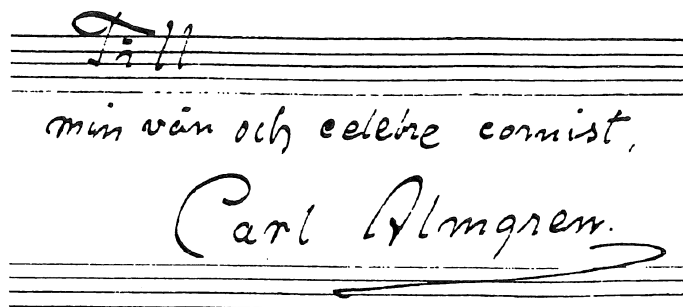 Till
min vän och celebre cornist,
Carl Almgren.